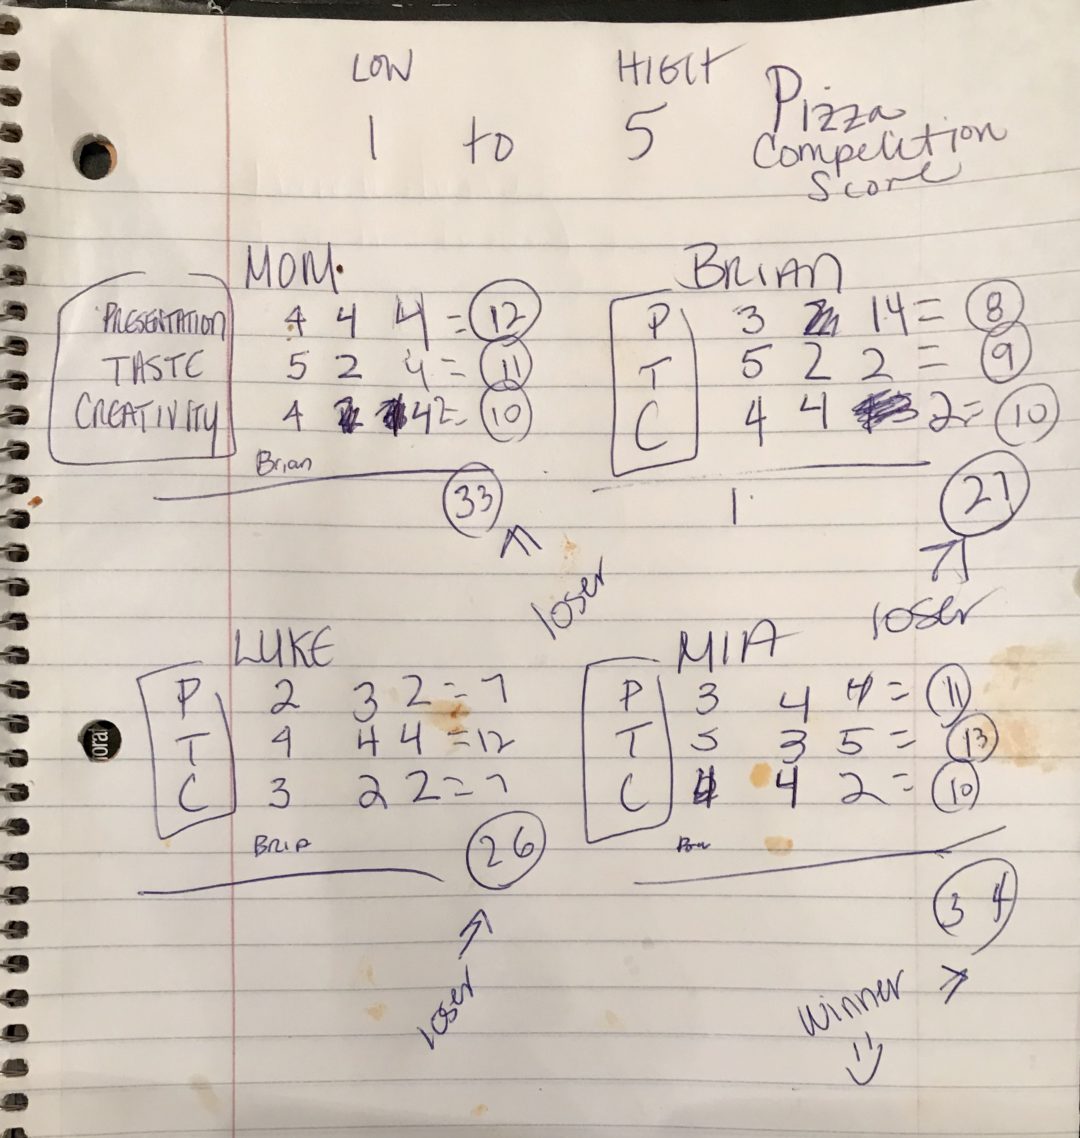 LOW HIGH
1 to 5
Pizza
Competition
Score
MOM.
PRESENTATION 4 4 4 = 12
TASTE 5 2 4 = 11
CREATIVITY 4 4 2 = 10
Brian
33
loser
BRIAN
P 3 14 = 8
T 5 2 2 = 9
C 4 4 2 = 10
1
27
loser
LUKE
P 2 3 2 = 7
T 4 4 4 = 12
C 3 2 2 = 7
26
loser
MIA
P 3 4 4 = 11
T 5 3 5 = 13
C 4 4 2 = 10
34
winner